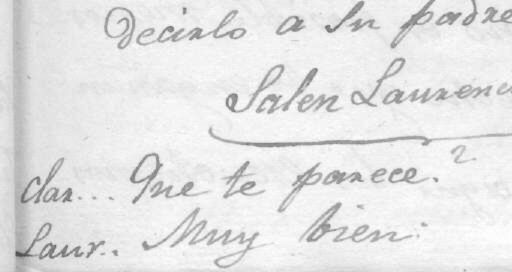 Decirlo a Su padre
Salen Laurenc
Clar... Que te parece?
Laur.. Muy bien.